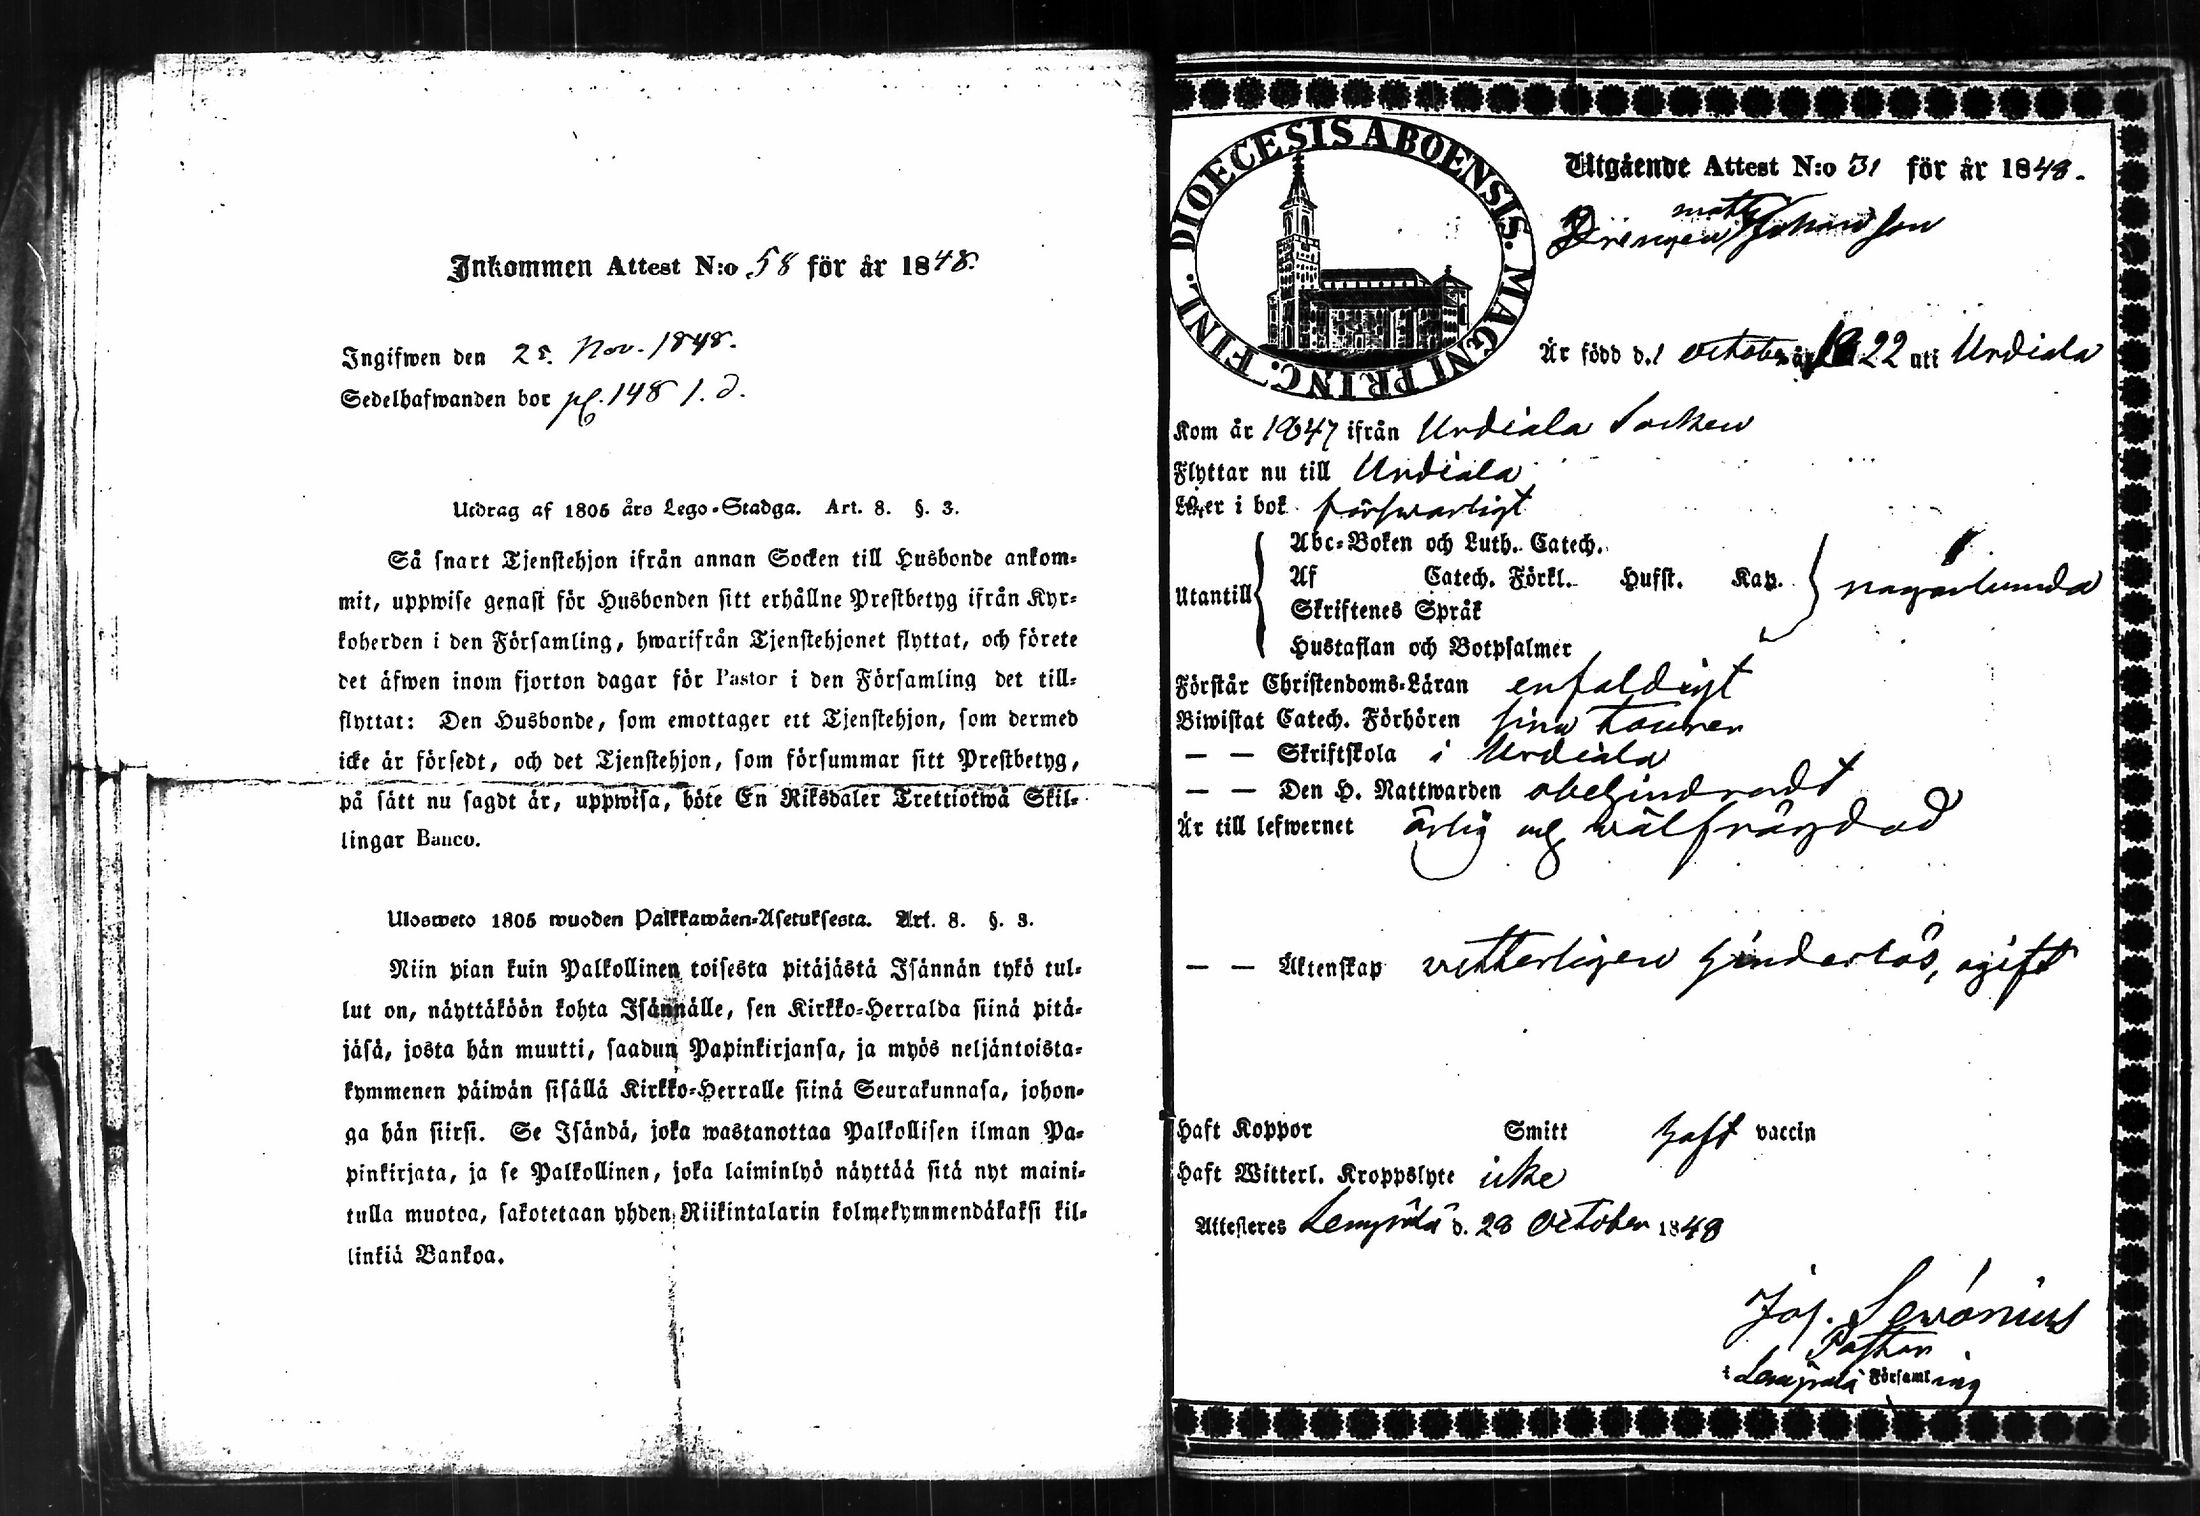 Inkommen Attest N:o 58 för år 1848.
Ingifwen den 25. Nov. 1848.
Sedelhafwanden bor pg. 148 1. d.
Utdrag af 1805 års Lego-Stadga. Art. 8. §. 3.
Så snart Tjenstehjon ifrån annan Socken till Husbonde ankom-
mit, uppwise genast för Husbonden sitt erhållne Prestbetyg ifrån Kyr-
koherden i den Församling, hwarifrån Tjenstehjonet flyttat, och förete
det äfwen inom fjorton dagar för Pastor i den Församling det till-
flyttat: Den Husbonde, som emottager ett Tjenstehjon, som dermed
icke är försedt, och det Tjenstehjon, som försummar sitt Prestbetyg,
på sätt nu sagdt är, uppwisa, böte En Riksdaler Trettiotwå Skil-
lingar Banco.
Ulosweto 1805 wuoden Palkkawäen-Asetuksesta. Art. 8. §. 3.
Niin pian kuin Palkollinen toisesta pitäjästä Isännän tykö tul-
lut on, näyttäköön kohta Isännälle, sen Kirkko-Herralda siinä pitä-
jäsä, josta hän muutti, saadun Papinkirjansa, ja myös neljäntoista-
kymmenen päiwän sisällä Kirkko-Herralle siinä Seurakunnasa, johon-
ga hän siirsi. Se Isändä, joka wastanottaa Palkollisen ilman Pa-
pinkirjata, ja se Palkollinen, joka laiminlyö näyttää sitä nyt maini-
tulla muotoa, sakotetaan yhden Riikintalarin kolmekymmendäkaksi kil-
linkiä Bankoa.
DIOECESIS ABOENSIS. MAGNI PRINC. FINL.
Utgående Attest N:o 31 för år 1848.
Drengen Matts Johansson
Är född d. 1 October år 1822 uti Urdiala
Kom år 1847 ifrån Urdiala Socken
Flyttar nu till Urdiala
Läser i bok försvarligt
Abc-Boken och Luth. Catech.
Utantill Af Catech. Förkl. Hufst. Kap. någorlunda
Skriftenes Språk
Hustaflan och Botpsalmer
Förstår Christendoms-Läran enfaldigt
Biwistat Catech. Förhören sina tourer
— — Skriftskola i Urdiala
— — Den H. Nattwarden obehindradt
Är till lefwernet ärlig och wälfrägdad
— — Äktenskap vetterligen hinderlös, ogift
Haft Koppor Smitt haft vaccin
Haft Witterl. Kroppslyte icke
Attesteres Lempälä d. 28 October 1848
Jos. Sevonius
Pastor
i Lempälä Församling